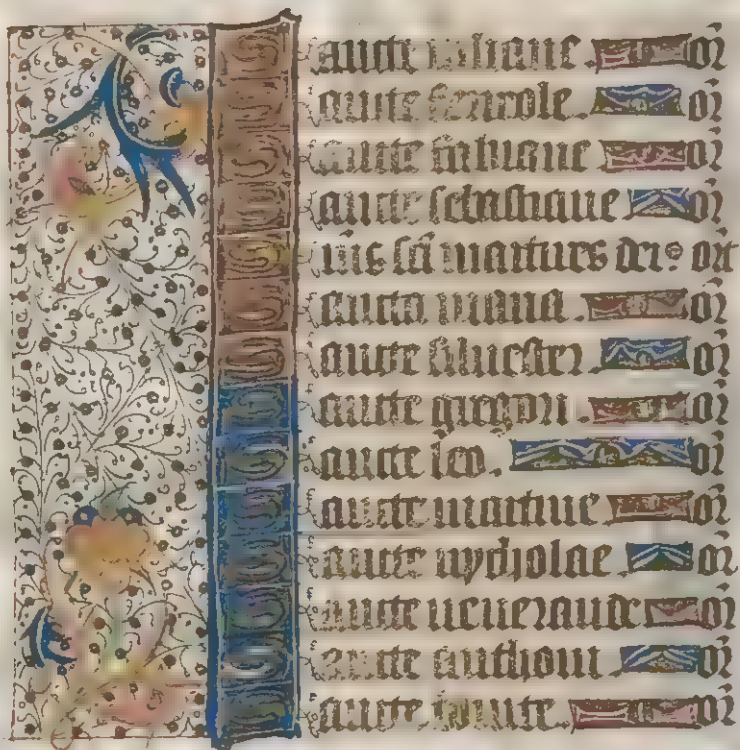 Sancte iuliane. or
Sancte ferreole. or
Sancte
Sancte sebastiane or
Om̄s sc̄i martires dei. or
Sancte
Sancte siluester or
Sancte gregori or
Sancte leo. or
Sancte martine or
Sancte nycholae or
Sancte uenerande or
Sancte anthoni or
Sancte